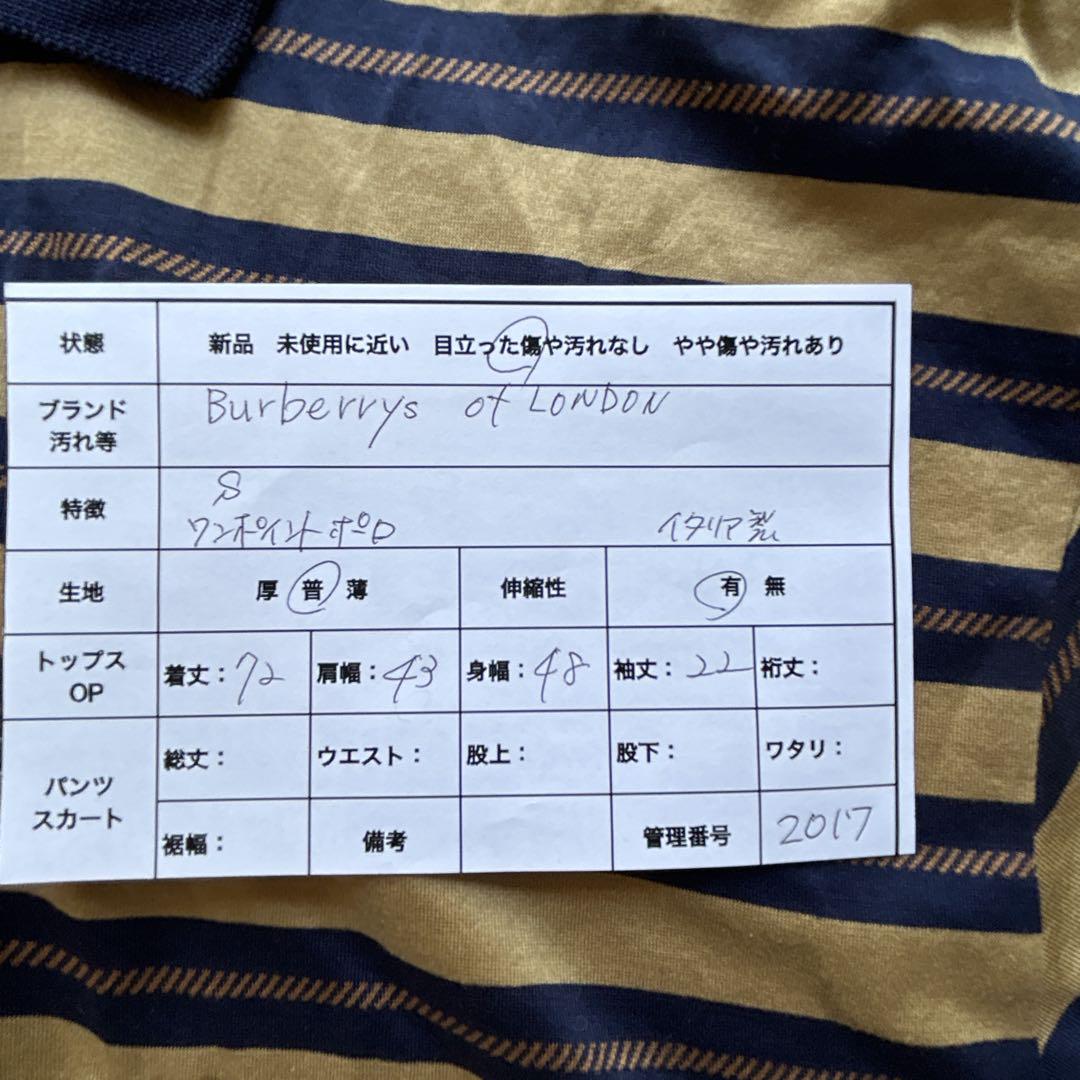 状態 新品 未使用に近い 目立った傷や汚れなし やや傷や汚れあり
ブランド
汚れ等
Burberrys of LONDON
特徴
S
ワンポイントポロ イタリア製
生地 厚 普 薄 伸縮性 有 無
トップス
OP
着丈：72 肩幅：43 身幅：48 袖丈：22 裄丈：
パンツ
スカート
総丈： ウエスト： 股上： 股下： ワタリ：
裾幅： 備考 管理番号 2017